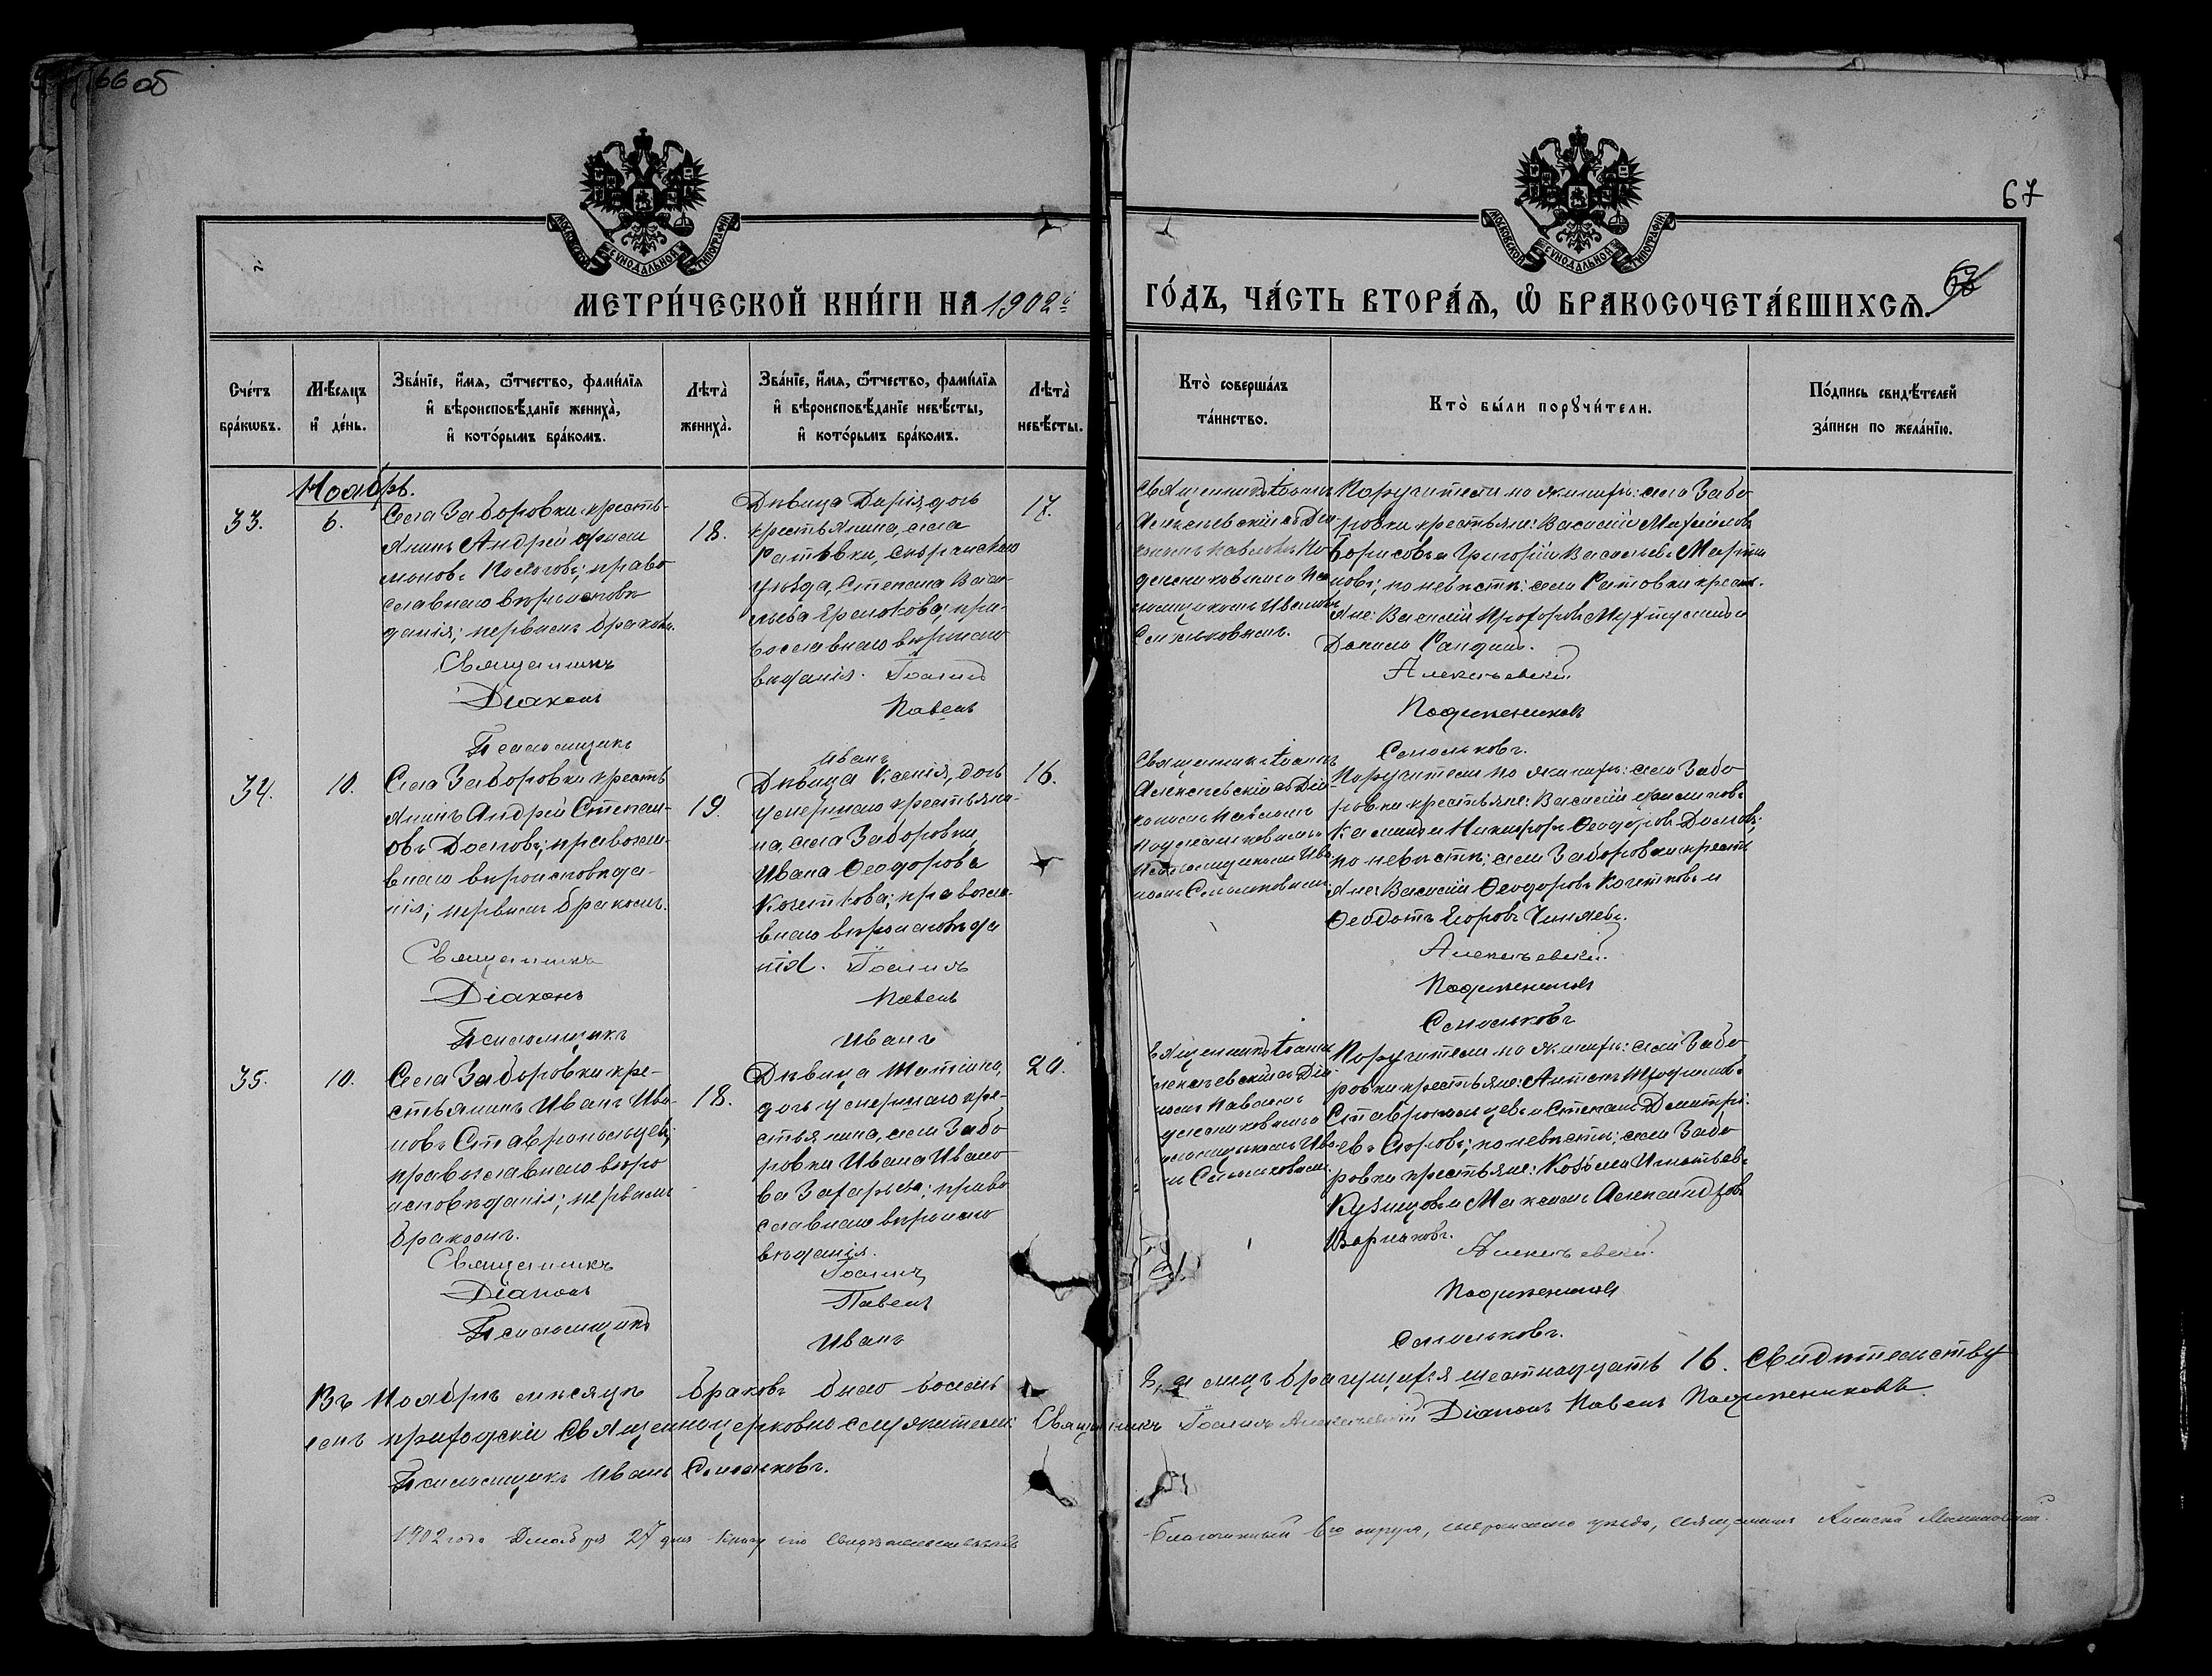 66 об
67
МЕТРИ́ЧЕСКОЙ КНИ́ГИ НА 1902й ГО́ДЪ, ЧА́СТЬ ВТОРА́Я, Ѽ БРАКОСОЧЕТА́ВШИХСЯ.
Сче́тъ бра́кѡвъ.
Мѣ́сяцъ и҆ де́нь.
Зва́нїе, и҆́мя, ѻ҆́тчество, фами́лїя и҆ вѣроисповѣ́данїе жениха̀, и҆ кото́рымъ бра́комъ.
Лѣта̀ жениха̀.
Зва́нїе, и҆́мя, ѻ҆́тчество, фами́лїя и҆ вѣроисповѣ́данїе невѣ́сты, и҆ кото́рымъ бра́комъ.
Лѣта̀ невѣ́сты.
Кто̀ соверша́лъ та́инство.
Кто̀ бы́ли порꙋчи́тели.
По́дпись свидѣ́телей за́писи по жела́нїю.
МОСКОВСКОЙ СѴНОДАЛЬНОЙ ТИПОГРАФІИ
МОСКОВСКОЙ СѴНОДАЛЬНОЙ ТИПОГРАФІИ
Ноябрь.
33.
6.
Села Заборовки кресть-
янинъ Андрей Фили
моновъ; право
славнаго вѣроисповѣ
данія; первымъ бракомъ.
18.
Дѣвица Дарія, дочь
крестьянина, села
Ратовки, Сызранскаго
уѣзда, Степана Васи-
льева Ермакова; пра-
вославнаго вѣроиспо
вѣданія.
17.
Священникъ Іоаннъ
Алексѣевскій съ Діа-
кономъ Павломъ По
дженниковымъ и Пса
ломщикомъ Иваномъ
Смольковымъ.
Поручители по женихѣ: села Забо
ровки крестьяне: Василій Михайловъ
Борисовъ и Григорій Васильевъ Марты
новъ; по невѣстѣ: села Ратовки кресть.
яне: Василій Прохоровъ и
Данилъ
Священникъ Іоаннъ Алексѣевскій
Діаконъ Павелъ Подженниковъ
Псаломщикъ Иванъ Смольковъ.
34.
10.
Села Заборовки кресть
янинъ Андрей Степан-
овъ Долговъ; правосла-
внаго вѣроисповѣда-
нія; первымъ бракомъ.
19.
Дѣвица Ксенія, дочь
умершаго крестьяни-
на, села Заборовки
Ивана Ѳеодорова
Кочеткова; правосла-
внаго вѣроисповѣда
нія.
16.
Священникъ Іоаннъ
Алексѣевскій съ Діа-
кономъ Павломъ
Подженниковымъ и
Псаломщикомъ Ива
номъ Смольковымъ.
Поручители по женихѣ: села Забо
ровки крестьяне: Василій Филиповъ
и Никифоръ Ѳеодоровъ Долговъ;
по невѣстѣ: села Заборовки кресть
яне: Василій Ѳеодоровъ Кочетковъ и
Ѳеодотъ Егоровъ
Священникъ Іоаннъ Алексѣевскій.
Діаконъ Павелъ Подженниковъ
Псаломщикъ Иванъ Смольковъ
35.
10.
Села Заборовки кре-
стьянинъ Иванъ Ива-
новъ Ставропольцевъ;
православнаго вѣро
исповѣданія; первымъ
бракомъ.
18.
Дѣвица Татіана,
дочь умершаго кре-
стьянина, села Забо
ровки Ивана Ивано
ва Захарьева; право
славнаго вѣроиспо
вѣданія.
20.
вященникъ Іоаннъ
лексѣевскій съ Діа
номъ Павломъ
дженниковымъ и
аломщикомъ Ива-
мъ Смольковымъ.
Поручители по женихѣ: села Забо
ровки крестьяне: Антонъ Трофимовъ
Ставропольцевъ и Степанъ Димитрі-
евъ; по невѣстѣ: села Забо
ровки крестьяне: Козьма Игнатьевъ
Кузнецовъ и Максимъ Александровъ
Варлаковъ.
Священникъ Іоаннъ Алексѣевскій.
Діаконъ Павелъ Подженниковъ
Псаломщикъ Иванъ Смольковъ.
Въ Ноябрѣ мѣсяцѣ браковъ было восемь 8, а лицъ брачущихся шестнадцать 16. Свидѣтельству
емъ приходскіи Священноцерковнослужители: Священникъ Іоаннъ Алексѣевскій Діаконъ Павелъ Подженниковъ
Псаломщикъ Иванъ Смольковъ.
1902 года Декабря 27 дня книгу сію свидѣтельствовалъ Благочинный 6го округа, Сызранскаго уѣзда, священникъ Алексѣй